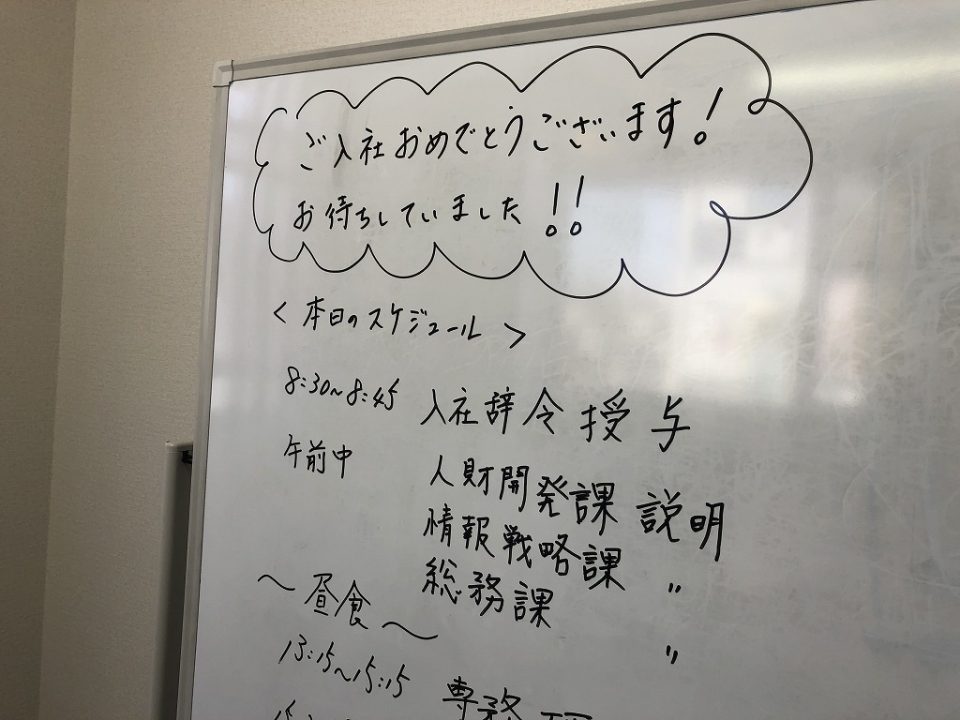 ご入社おめでとうございます！
お待ちしていました！！
＜本日のスケジュール＞
8:30～8:45 入社辞令授与
午前中 人財開発課 説明
情報戦略課 〃
総務課 〃
～昼食～
13:15～15:15 専務